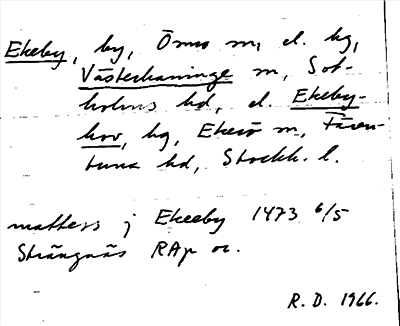 Ekeby, by, Ösmo sn, el. hg,
Västerhaninge sn, Sot-
holms hd, el. Ekeby-
hov, hg, Ekerö sn, Fären-
tuna hd, Stockh. l.
matters j Ekeeby 1473 6/5
Strängnäs RAp or.
R. D. 1966.